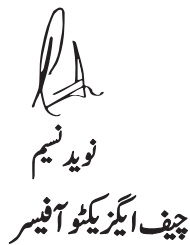 نوید نسیم
چیف ایگزیکٹو آفیسر